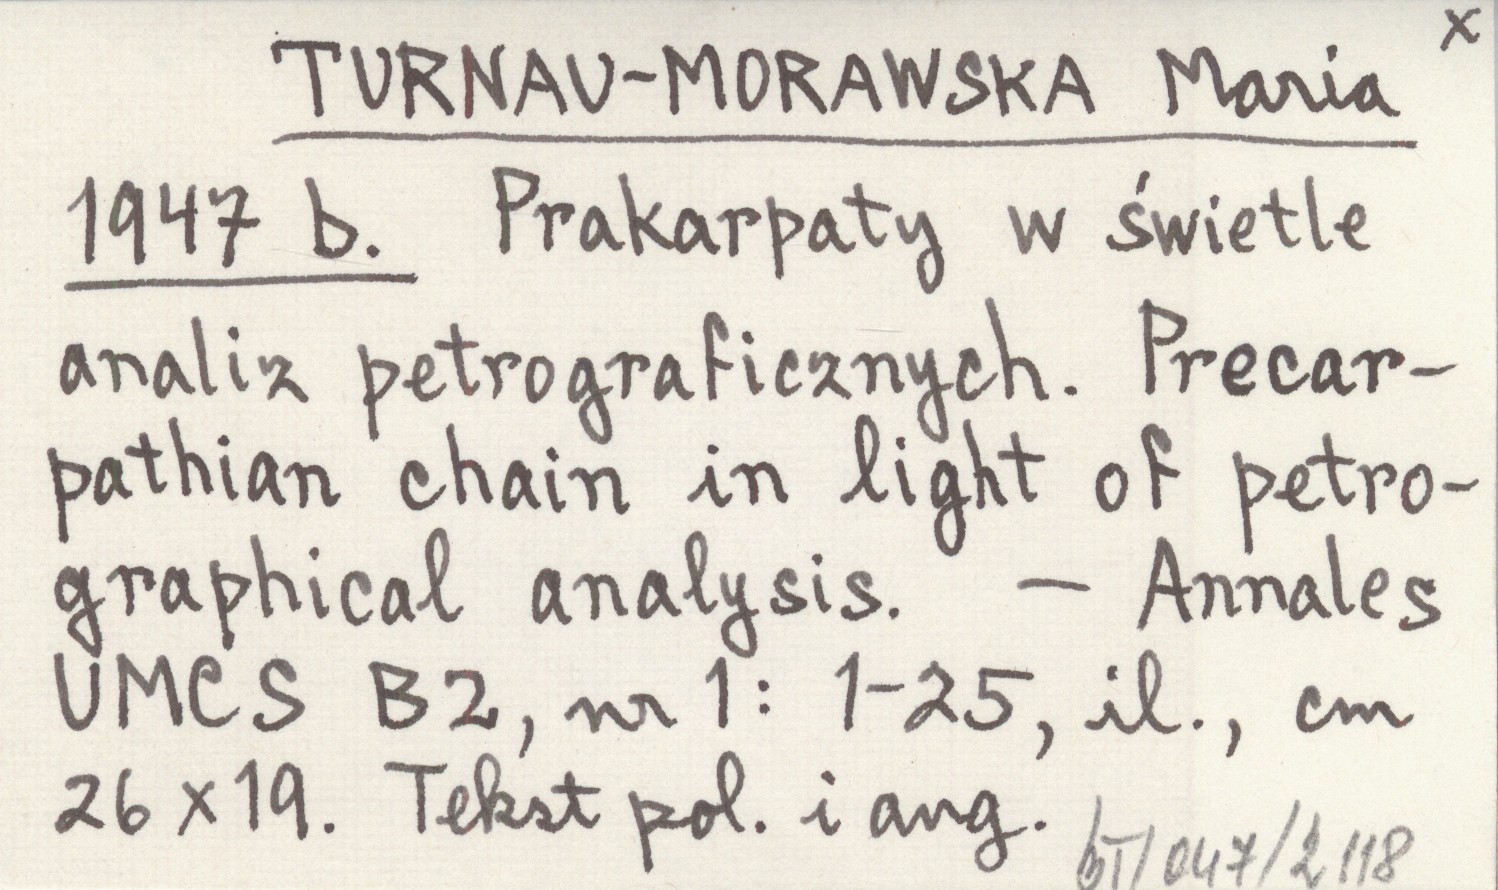 x
TURNAU-MORAWSKA Maria
1947 b. Prakarpaty w świetle
analiz petrograficznych. Precar-
pathian chain in light of petro-
graphical analysis. — Annales
UMCS B2, nr 1: 1-25, il., cm
26 x 19. Tekst pol. i ang.
/047/2118